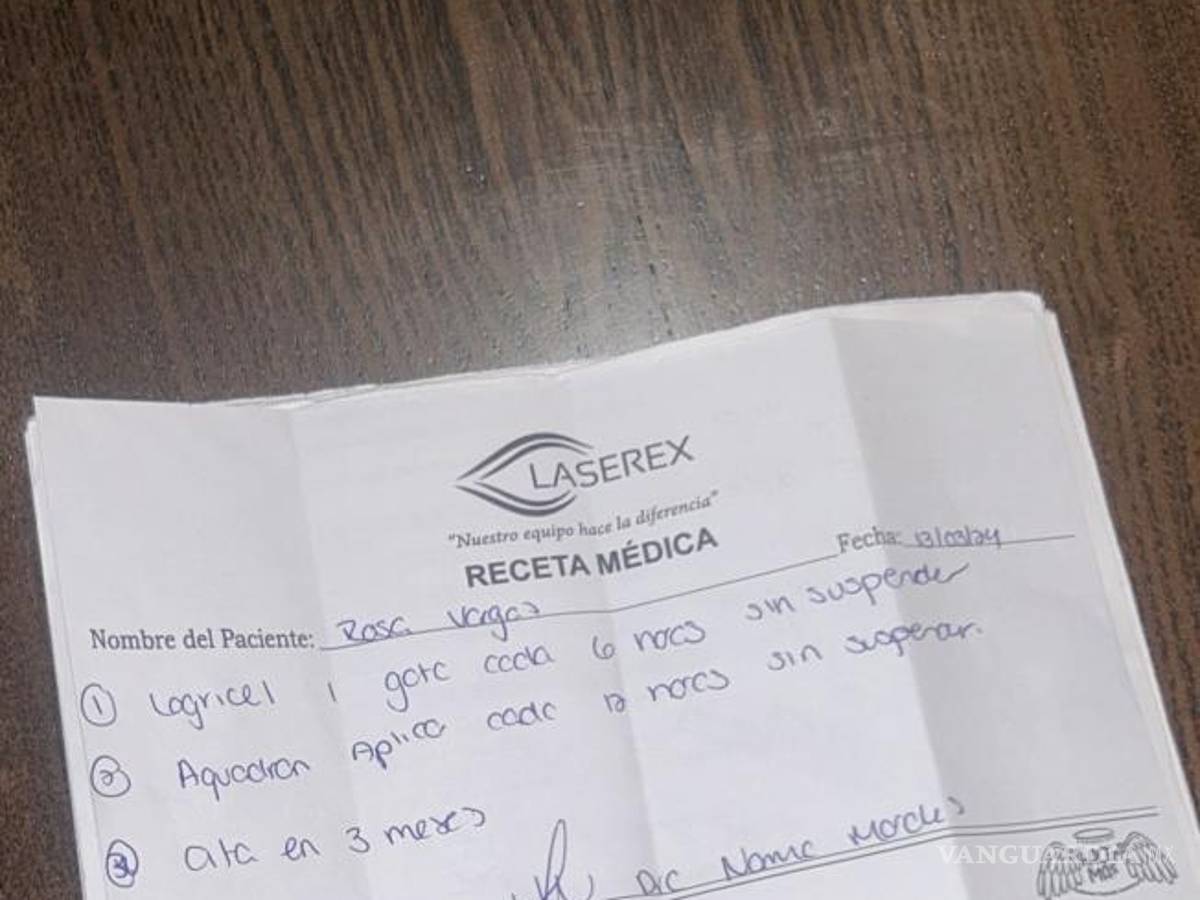 LASEREX
"Nuestro equipo hace la diferencia"
RECETA MÉDICA
Fecha: 13/03/24
Nombre del Paciente: Rosa Vargas
① Lagricel 1 gota cada 6 horas sin suspender
② Aquadran Aplica cada 12 horas sin suspender.
③ cita en 3 meses
Dra Norma Morales
VANGUARDIA MX